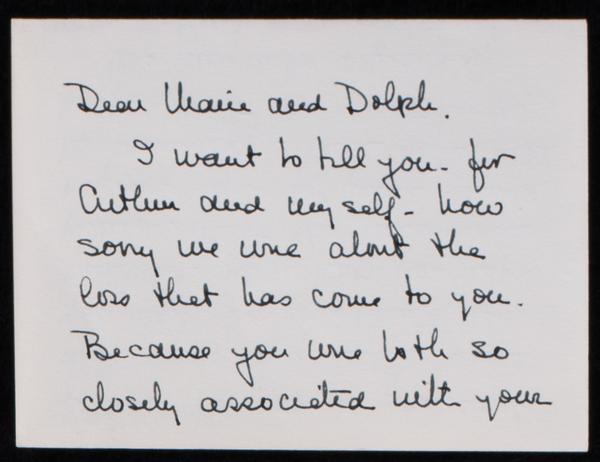 Dear Marie and Dolph.
I want to tell you - for
Arthur and myself - how
sorry we were about the
loss that has come to you.
Because you were both so
closely associated with your